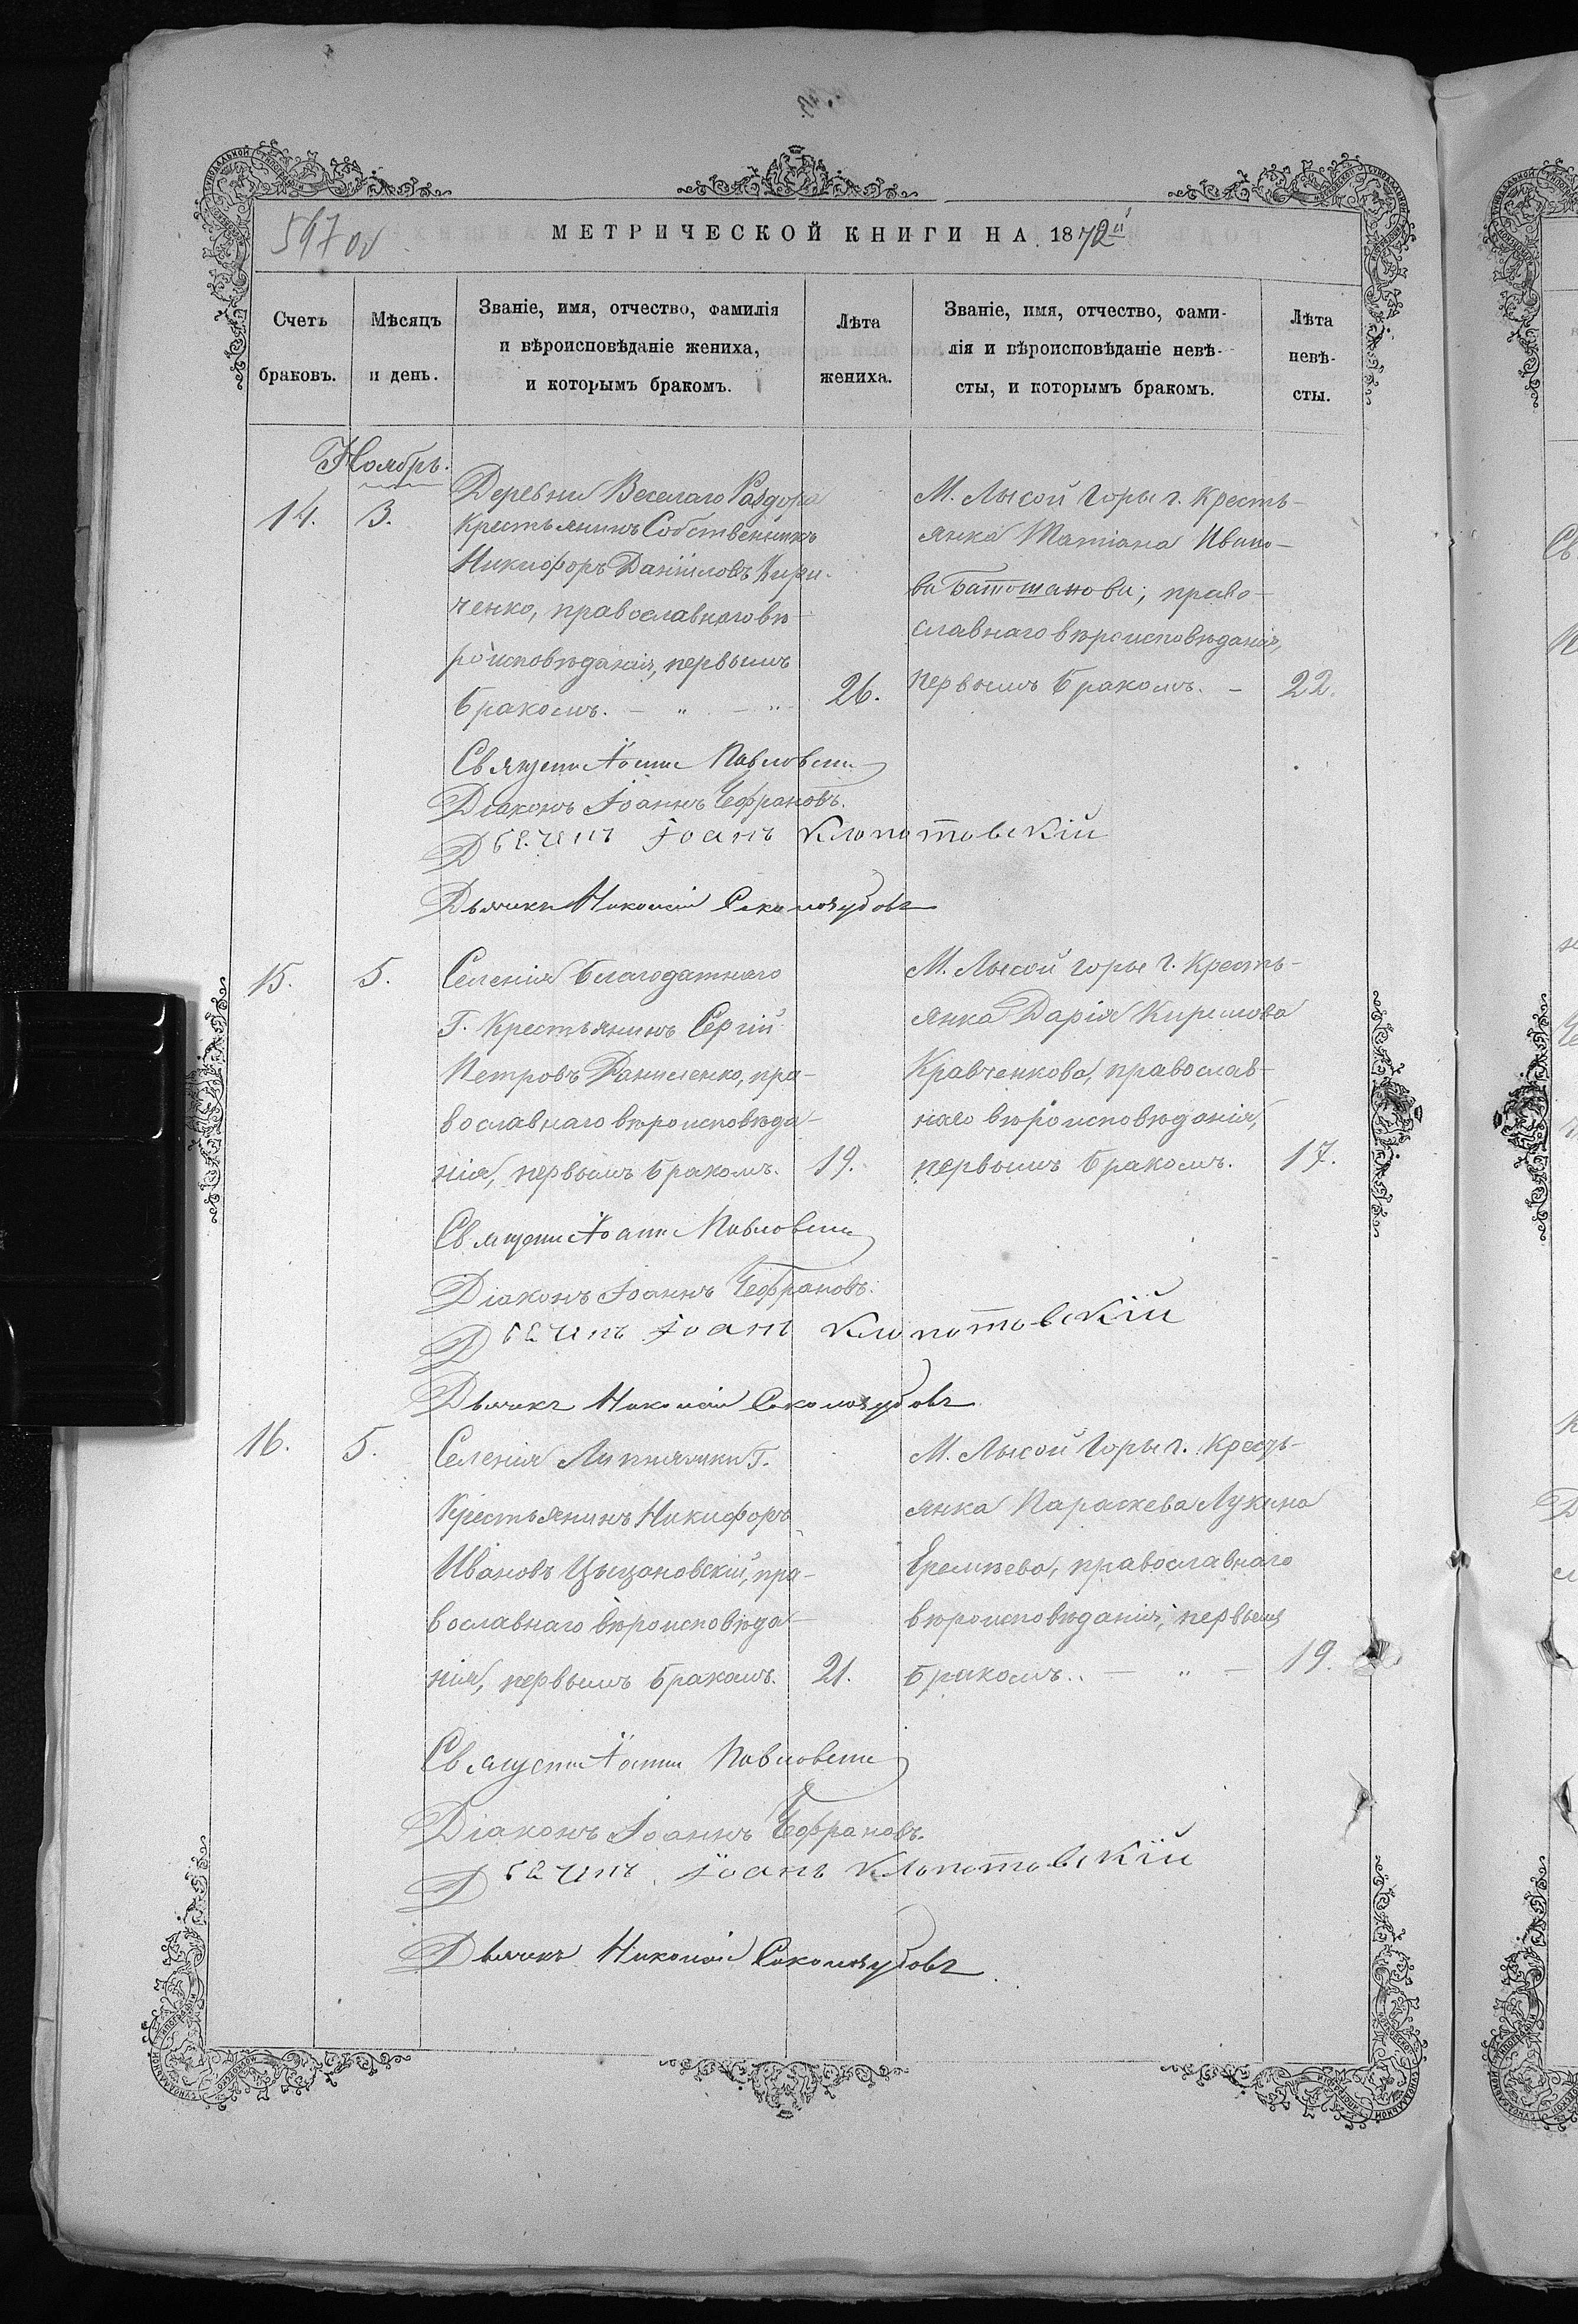 МЕТРИЧЕСКОЙ КНИГИ НА 1872й
Счетъ браковъ.
Мѣсяцъ и день.
Званіе, имя, отчество, фамилія
и вѣроисповѣданіе жениха,
и которымъ бракомъ.
Лѣта жениха.
Званіе, имя, отчество, фами-
лія и вѣроисповѣданіе невѣ-
сты, и которымъ бракомъ.
Лѣта невѣ-
сты.
Ноябрь.
14.
3.
Деревни Веселаго Раздора
Крестьянинъ Собственникъ
Никифоръ Даніиловъ Кири-
ченко, православнаго вѣ-
роисповѣданія, первымъ
бракомъ. — „ — „
26.
М. Лысой Горы г. Кресть-
янка Татіана Ивано-
ва Батошанова; право-
славнаго вѣроисповѣданія,
первымъ бракомъ. —
22.
Іоаннъ Павлов
Діаконъ Іоаннъ Чефрановъ.
Іоанъ Клопотовскій
Дьячекъ Николай
15.
5.
Селенія Благодатнаго
Г. Крестьянинъ Сергій
Петровъ Даниленко, пра-
вославнаго вѣроисповѣда-
нія, первымъ бракомъ.
19.
М. Лысой Горы г. Кресть-
янка Дарія Кирилова
Кравченкова, православ-
наго вѣроисповѣданія,
первымъ бракомъ.
17.
Іоаннъ Павлов
Діаконъ Іоаннъ Чефрановъ.
Іоанъ Клопотовскій
Дьячекъ Николай
16.
5.
Селенія Липняжки Г.
Крестьянинъ Никифоръ
Ивановъ Цыцановскій, пра-
вославнаго вѣроисповѣда-
нія, первымъ бракомъ.
21.
М. Лысой Горы г. Кресть-
янка Параскева Лукина
Еремѣева, православнаго
вѣроисповѣданія, первымъ
бракомъ. — „ —
19.
Іоаннъ Павлов
Діаконъ Іоаннъ Чефрановъ.
Іоанъ Клопотовскій
Дьячекъ Николай